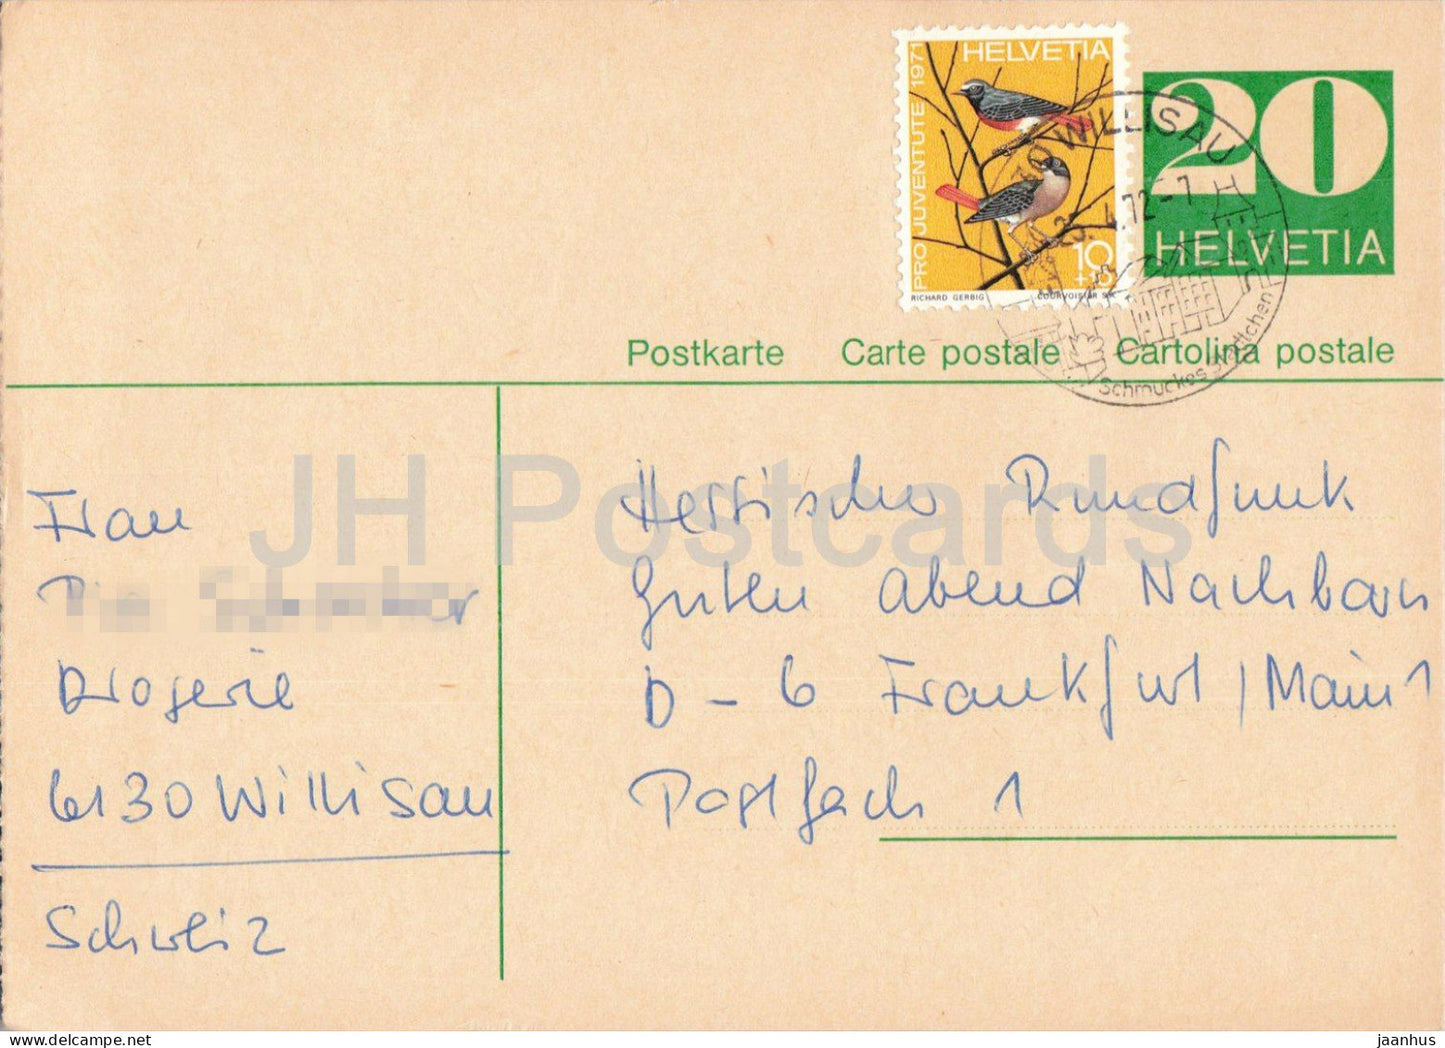 HELVETIA
PRO JUVENTUTE 1971
10
RICHARD GERBIG COURVOISIER S.A.
20
HELVETIA
WILLISAU
25.4.72-7
Schmuckes Städtchen
Postkarte Carte postale Cartolina postale
Frau
Drogerie
6130 Willisau
Schweiz
Hessischer Rundfunk
Guten Abend Nachbarn
D - 6 Frankfurt / Main 1
Postfach 1
JH Postcards
www.hippostcard.com
jaanhus